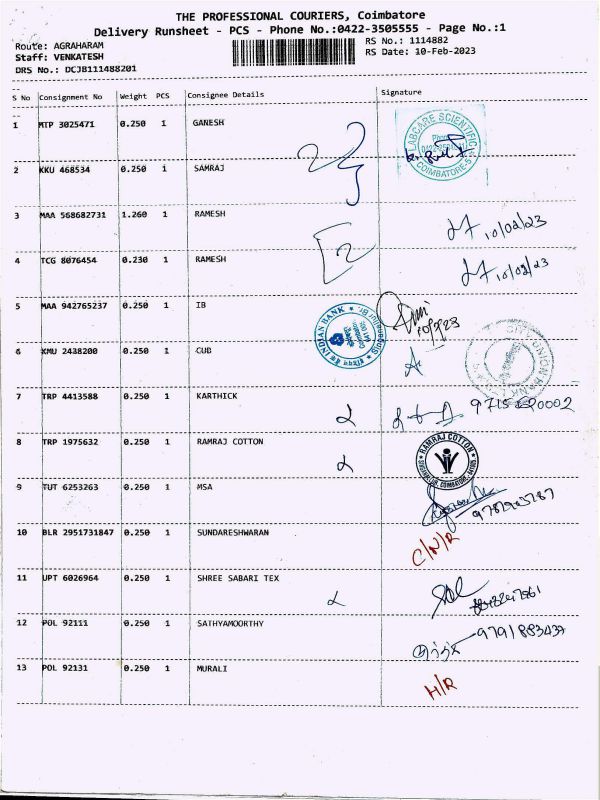 THE PROFESSIONAL COURIERS, Coimbatore
Delivery Runsheet - PCS - Phone No.:0422-3505555 - Page No.:1
Route: AGRAHARAM
RS No.: 1114882
Staff: VENKATESH
RS Date: 10-Feb-2023
DRS No.: DCJB111488201
S No Consignment No Weight PCS Consignee Details Signature
1 MTP 3025471 0.250 1 GANESH
LABCARE SCIENTIFIC COIMBATORE-5
2 KKU 468534 0.250 1 SAMRAJ
3 MAA 568682731 1.260 1 RAMESH 10/02/23
4 TCG 8076454 0.230 1 RAMESH 10/02/23
5 MAA 942765237 0.250 1 IB
INDIAN BANK
6 KMU 2438200 0.250 1 CUB
CITY UNION BANK
7 TRP 4413588 0.250 1 KARTHICK
8 TRP 1975632 0.250 1 RAMRAJ COTTON
RAMRAJ COTTON
9 TUT 6253263 0.250 1 MSA
10 BLR 2951731847 0.250 1 SUNDARESHWARAN C/N/R
11 UPT 6026964 0.250 1 SHREE SABARI TEX
12 POL 92111 0.250 1 SATHYAMOORTHY
13 POL 92131 0.250 1 MURALI H/R